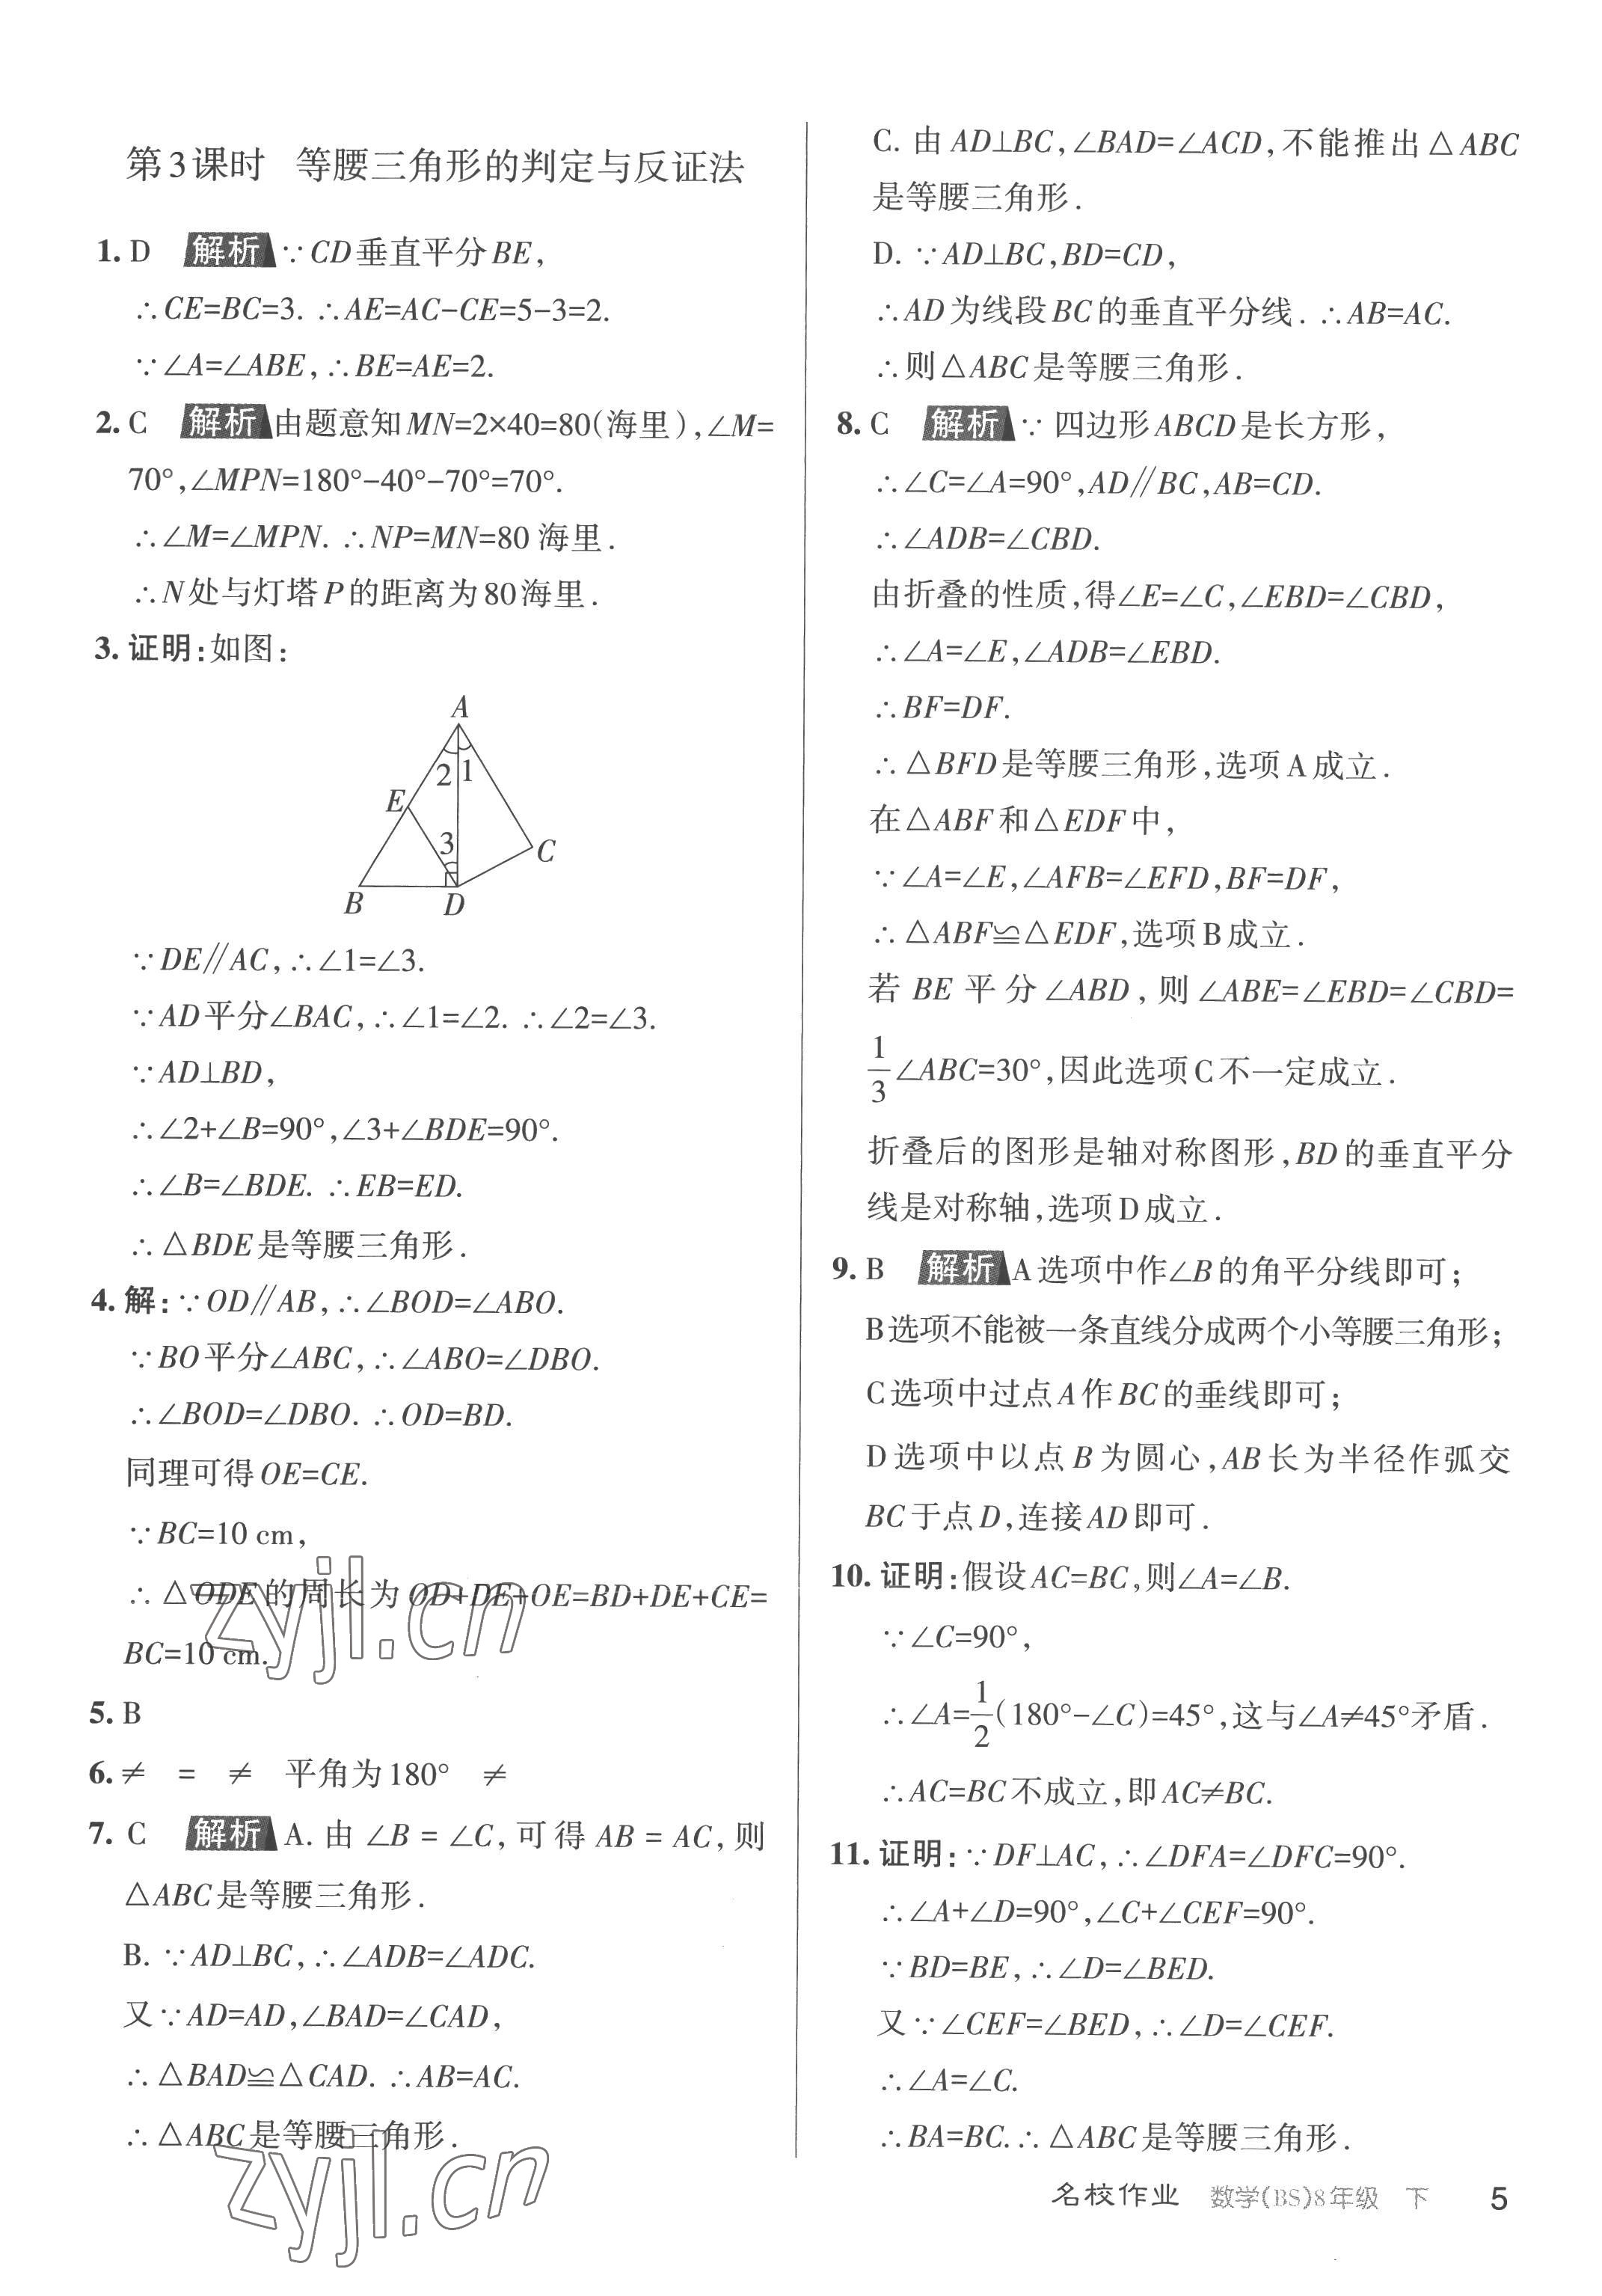 第3课时 等腰三角形的判定与反证法
1. D 解析 ∵CD垂直平分BE,
∴CE=BC=3. ∴AE=AC-CE=5-3=2.
∵∠A=∠ABE, ∴BE=AE=2.
2. C 解析 由题意知MN=2×40=80(海里),∠M=
70°,∠MPN=180°-40°-70°=70°.
∴∠M=∠MPN. ∴NP=MN=80海里.
∴N处与灯塔P的距离为80海里.
3. 证明:如图:
A
2 1
E
3
C
B D
∵DE∥AC, ∴∠1=∠3.
∵AD平分∠BAC, ∴∠1=∠2. ∴∠2=∠3.
∵AD⊥BD,
∴∠2+∠B=90°,∠3+∠BDE=90°.
∴∠B=∠BDE. ∴EB=ED.
∴△BDE是等腰三角形.
4. 解:∵OD∥AB, ∴∠BOD=∠ABO.
∵BO平分∠ABC, ∴∠ABO=∠DBO.
∴∠BOD=∠DBO. ∴OD=BD.
同理可得OE=CE.
∵BC=10 cm,
∴△ODE的周长为OD+DE+OE=BD+DE+CE=
BC=10 cm.
5. B
6. ≠ = ≠ 平角为180° ≠
7. C 解析 A. 由∠B=∠C,可得AB=AC,则
△ABC是等腰三角形.
B. ∵AD⊥BC, ∴∠ADB=∠ADC.
又∵AD=AD,∠BAD=∠CAD,
∴△BAD≌△CAD. ∴AB=AC.
∴△ABC是等腰三角形.
C. 由AD⊥BC,∠BAD=∠ACD,不能推出△ABC
是等腰三角形.
D. ∵AD⊥BC,BD=CD,
∴AD为线段BC的垂直平分线. ∴AB=AC.
∴则△ABC是等腰三角形.
8. C 解析 ∵四边形ABCD是长方形,
∴∠C=∠A=90°,AD∥BC,AB=CD.
∴∠ADB=∠CBD.
由折叠的性质,得∠E=∠C,∠EBD=∠CBD,
∴∠A=∠E,∠ADB=∠EBD.
∴BF=DF.
∴△BFD是等腰三角形,选项A成立.
在△ABF和△EDF中,
∵∠A=∠E,∠AFB=∠EFD,BF=DF,
∴△ABF≌△EDF,选项B成立.
若BE平分∠ABD,则∠ABE=∠EBD=∠CBD=
1/3∠ABC=30°,因此选项C不一定成立.
折叠后的图形是轴对称图形,BD的垂直平分
线是对称轴,选项D成立.
9. B 解析 A选项中作∠B的角平分线即可;
B选项不能被一条直线分成两个小等腰三角形;
C选项中过点A作BC的垂线即可;
D选项中以点B为圆心,AB长为半径作弧交
BC于点D,连接AD即可.
10. 证明:假设AC=BC,则∠A=∠B.
∵∠C=90°,
∴∠A=1/2(180°-∠C)=45°,这与∠A≠45°矛盾.
∴AC=BC不成立,即AC≠BC.
11. 证明:∵DF⊥AC, ∴∠DFA=∠DFC=90°.
∴∠A+∠D=90°,∠C+∠CEF=90°.
∵BD=BE, ∴∠D=∠BED.
又∵∠CEF=∠BED, ∴∠D=∠CEF.
∴∠A=∠C.
∴BA=BC.∴△ABC是等腰三角形.
名校作业 数学(BS)8年级 下 5
zyjl.cn
zyjl.cn